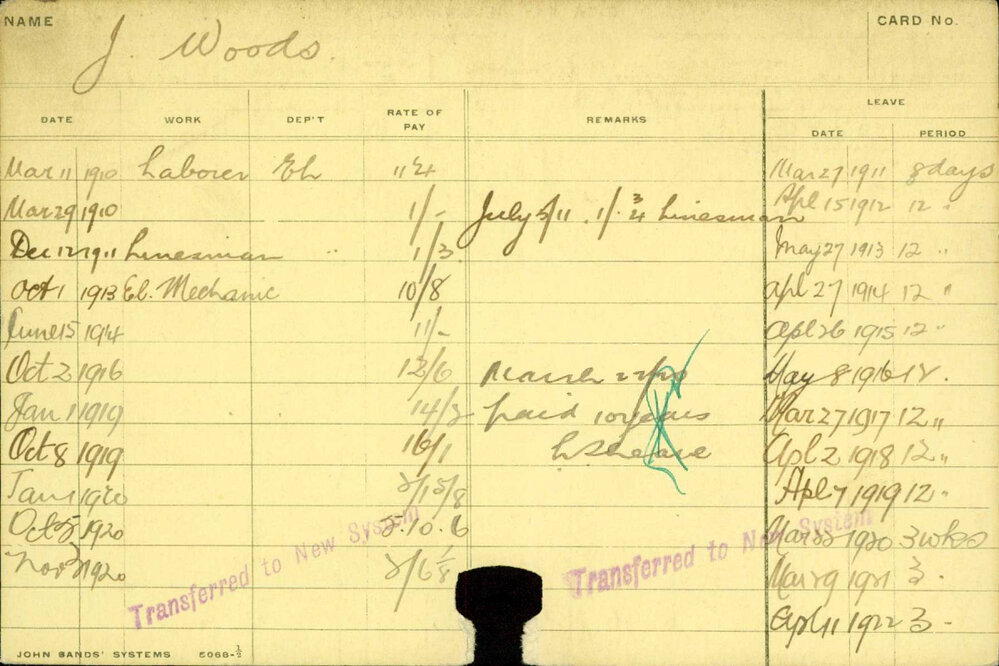 NAME J. Woods. CARD No.
DATE WORK DEP'T RATE OF PAY REMARKS LEAVE
DATE PERIOD
Mar 11 1910 Laborer El Mar 27 1911 8 days
Mar 29 1910 1/- July 5/11 1/. 3/4 Linesman Apl 15 1912 12 "
Dec 12 1911 Linesman " 1/3 May 27 1913 12 "
Oct 1 1913 El. Mechanic 10/8 Apl 27 1914 12 "
June 15 1914 11/- Apl 26 1915 12 "
Oct 2 1916 12/6 March May 8 1916 12 .
Jan 1 1919 14/2 paid 10 years Mar 27 1917 12 "
Oct 8 1919 16/1 Apl 2 1918 12 "
Jan 1920 Apl 7 1919 12 "
Oct 1920 .10.6 1920 3 wks
Nov 1920 Mar 1921 3 .
Transferred to New System Transferred to New System
Apl 11 1922 3 -
JOHN SANDS' SYSTEMS 5068-½